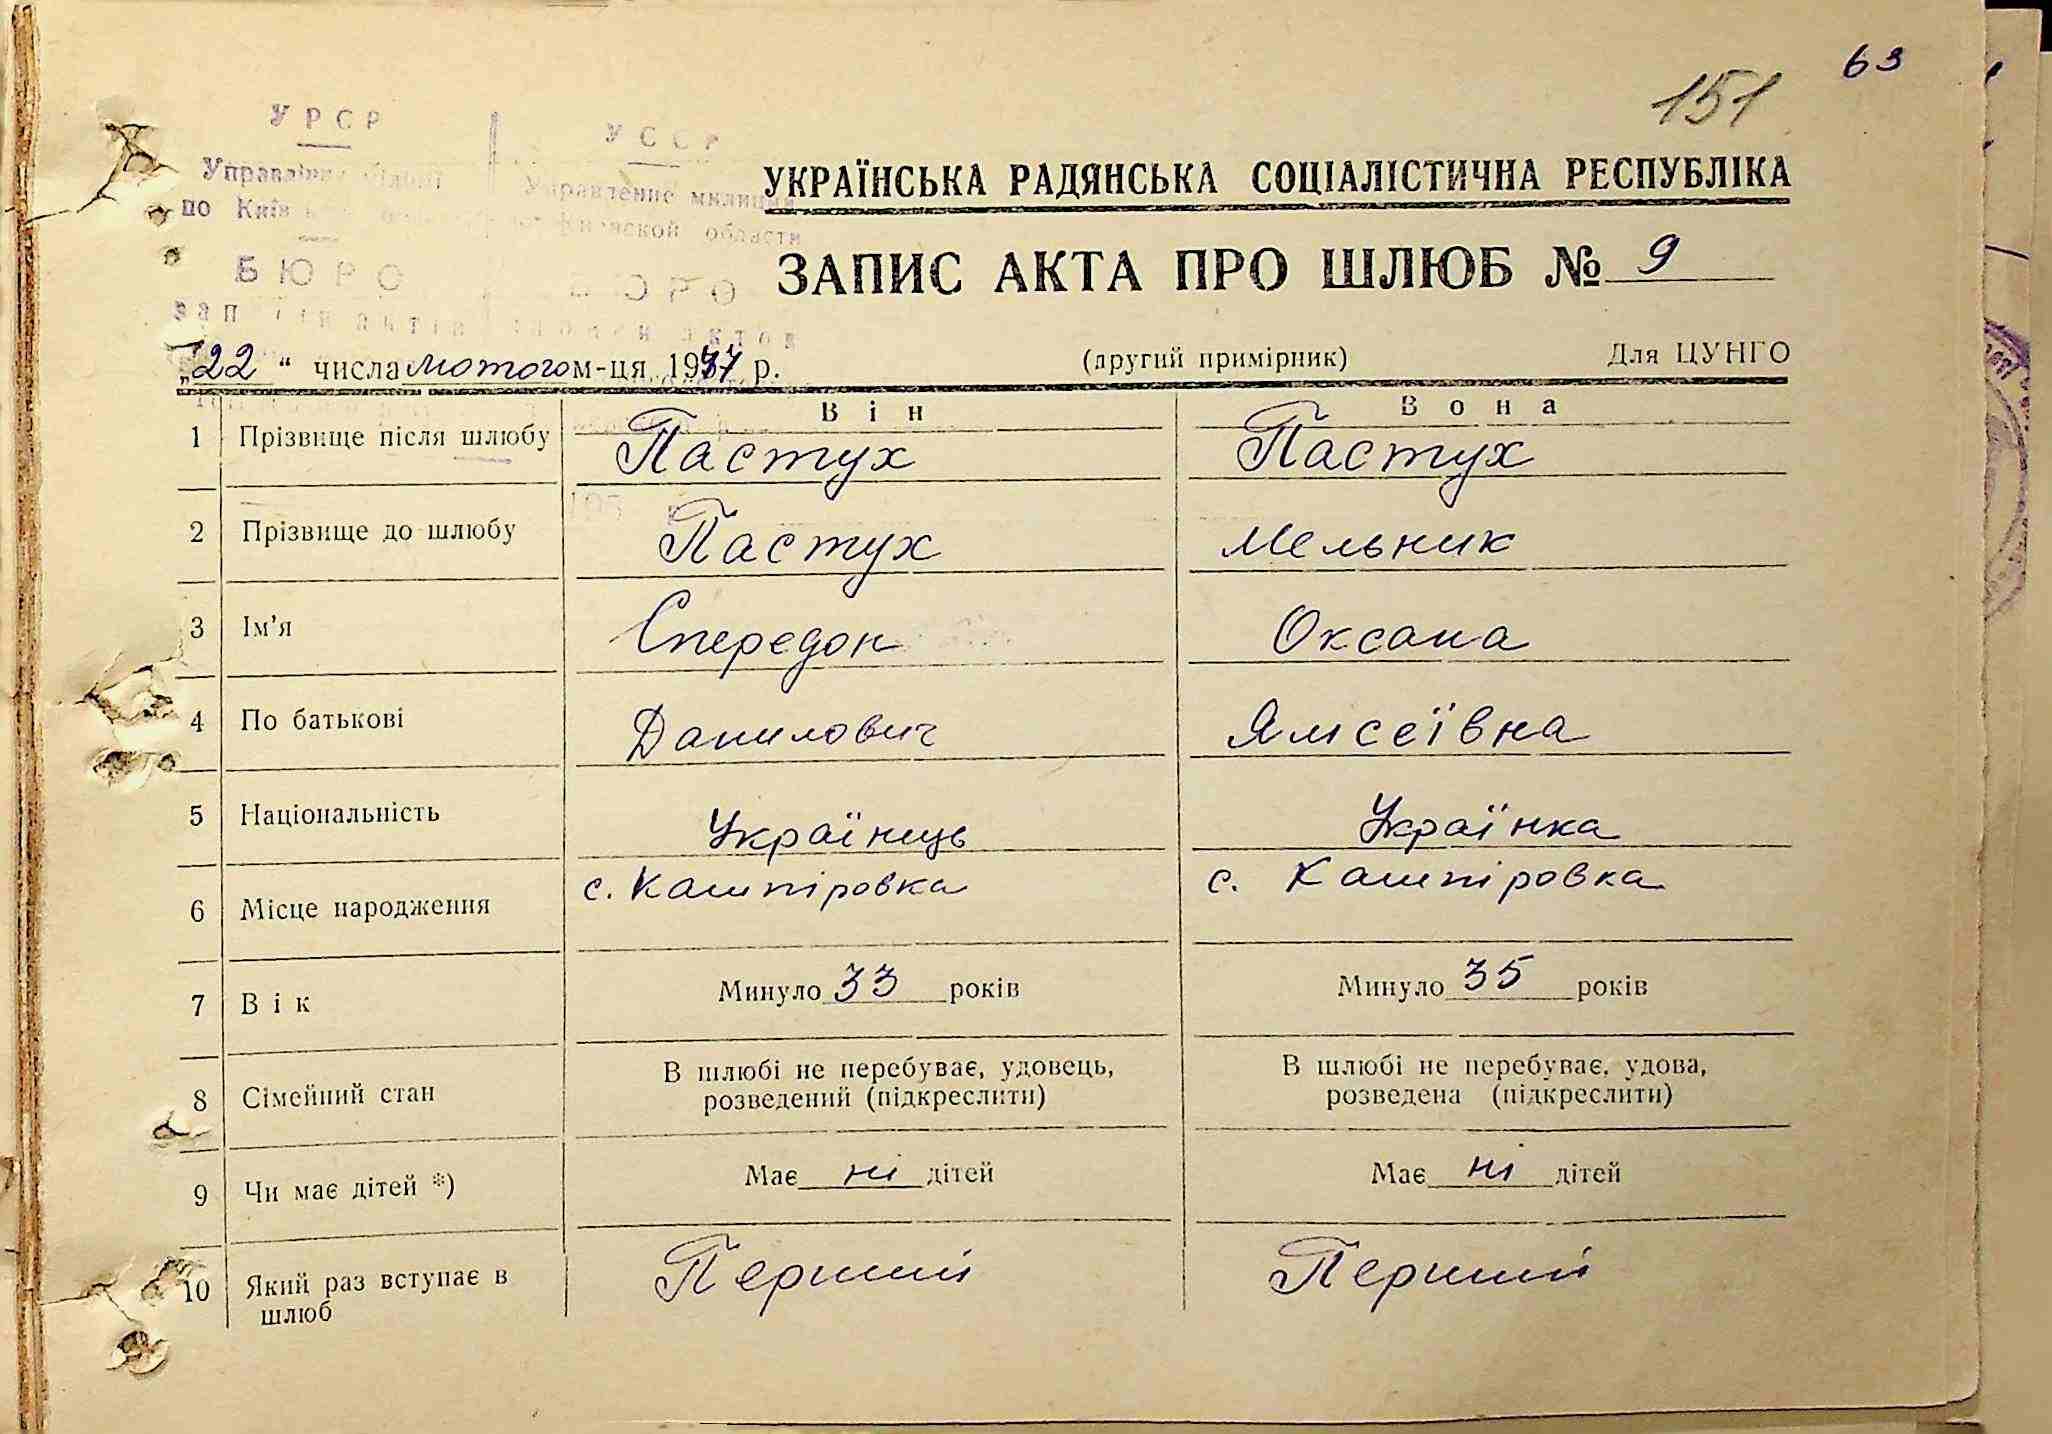 63
151
УРСР
УССР
Управління міліції
Управление милиции
по Київ
Киевской области
БЮРО
УКРАЇНСЬКА РАДЯНСЬКА СОЦІАЛІСТИЧНА РЕСПУБЛІКА
ЗАПИС АКТА ПРО ШЛЮБ № 9
„22“ числа лютого м-ця 1937 р. (другий примірник) Для ЦУНГО
Він Вона
1 Прізвище після шлюбу Пастух Пастух
2 Прізвище до шлюбу Пастух Мельник
3 Ім'я Спередон Оксана
4 По батькові Данилович Ялисеївна
5 Національність Українець Українка
6 Місце народження с. Кашпіровка с. Кашпіровка
7 Вік Минуло 33 років Минуло 35 років
8 Сімейний стан В шлюбі не перебуває, удовець, В шлюбі не перебуває, удова,
розведений (підкреслити) розведена (підкреслити)
9 Чи має дітей *) Має ні дітей Має ні дітей
10 Який раз вступає в Перший Перший
шлюб